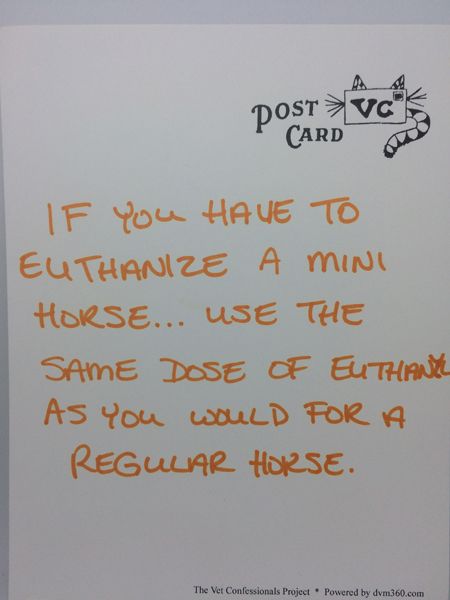 POST
CARD
VC
IF YOU HAVE TO
EUTHANIZE A MINI
HORSE... USE THE
SAME DOSE OF EUTHANYL
AS YOU WOULD FOR A
REGULAR HORSE.
The Vet Confessionals Project * Powered by dvm360.com